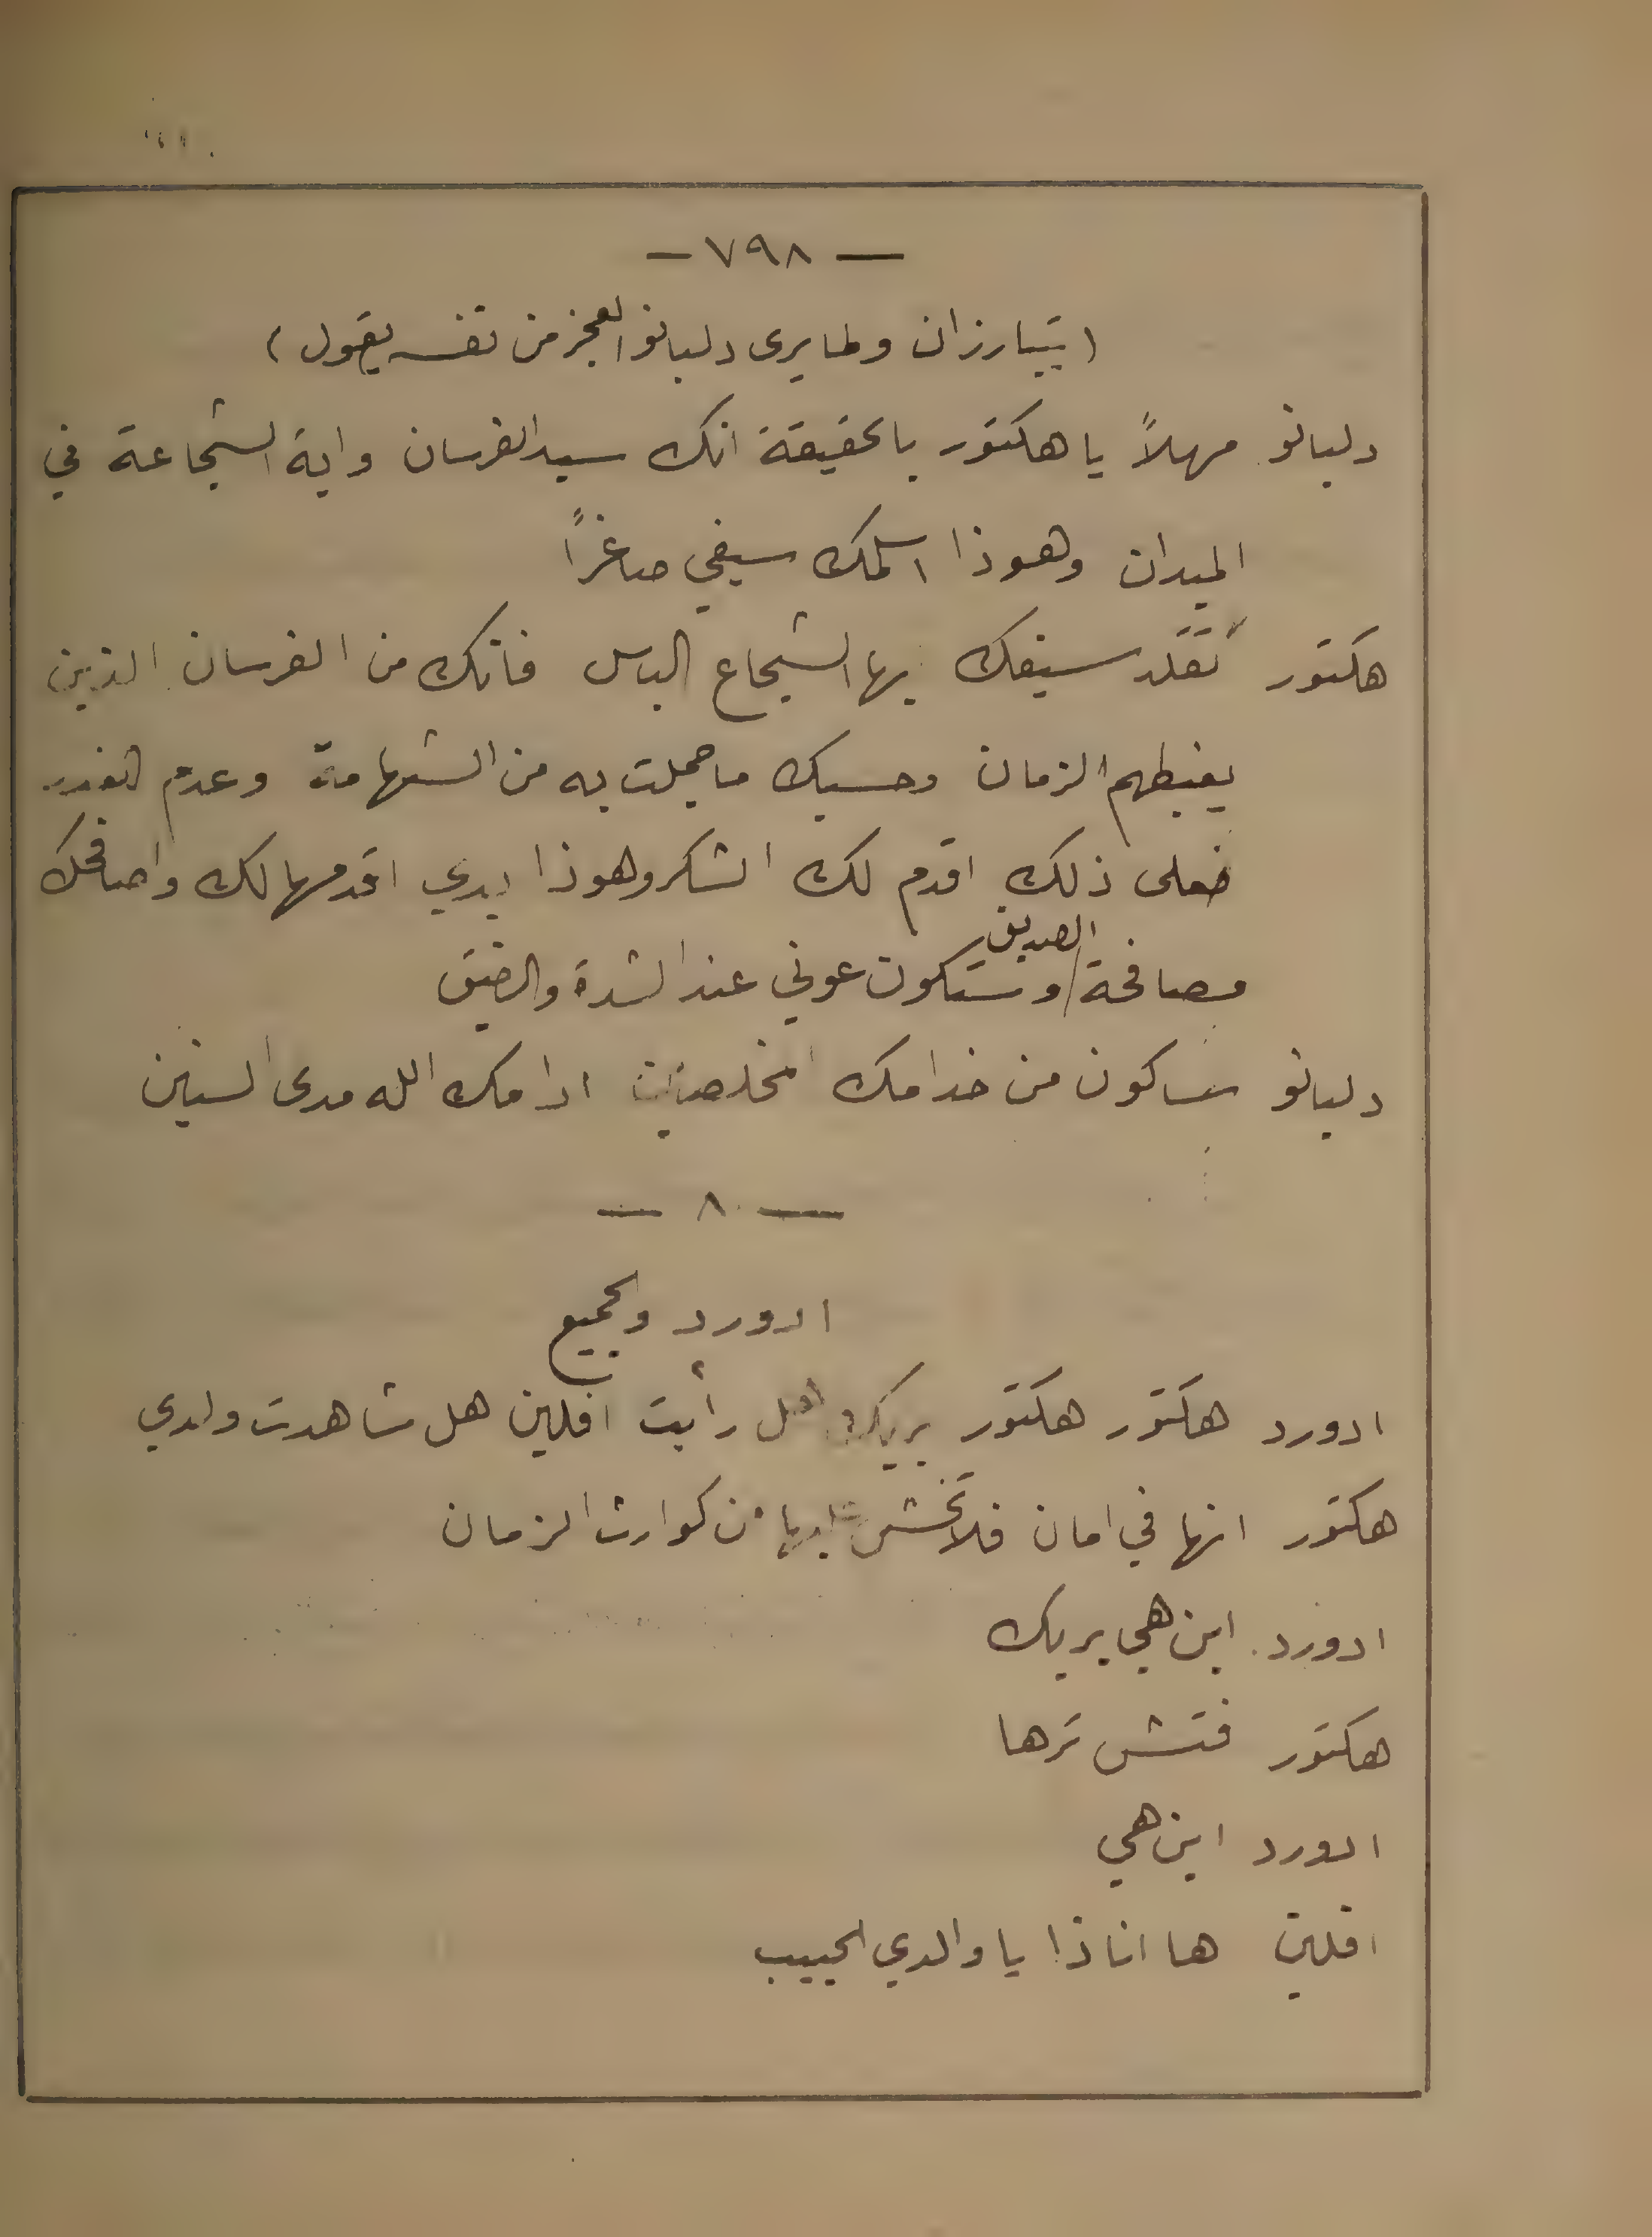 — ٧٩٨ —
( يتبارزان ولما يرى دلبانو العجز من نفسه يقول )
دلبانو مهلاً يا هكتور بالحقيقة انك سيد الفرسان واية الشجاعة في
الميدان وهوذا اسلمك سيفي صاغرًا
هكتور تقلد سيفك ايها الشجاع الباسل فانك من الفرسان الذين
يغبطهم الزمان وحسبك ما جبلت به من الشهامة وعدم الغدر
فعلى ذلك اقدم لك الشكر وهوذا يدي اقدمها لك واصافحك
مصافحة الصديق وستكون عوني عند الشدة والضيق
دلبانو ساكون من خدامك المخلصين ادامك الله مدى السنين
— ٨ —
ادورد والجميع
ادورد هكتور هكتور بربك هل رأيت افلين هل شاهدت ولدي
هكتور انها في امان فلا تخش عليها من كوارث الزمان
ادورد اين هي بربك
هكتور فتش ترها
ادورد اين هي
افلين ها انا ذا يا والدي الحبيب